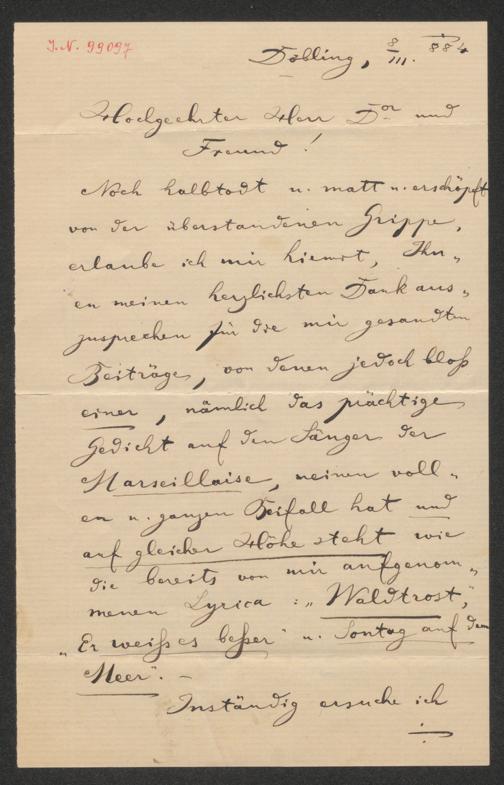 J.N. 99097
Döbling, 8/III. 884
Hochgeehrter Herr Dor und
Freund!
Noch halbtodt u. matt u. erschöpft
von der überstandenen Grippe,
erlaube ich mir hiemit, Ihn„
en meinen herzlichsten Dank aus„
zusprechen für die mir gesandten
Beiträge, von denen jedoch bloß
einer, nämlich das prächtige
Gedicht auf den Sänger der
Marseillaise, meinen voll„
en u. ganzen Beifall hat und
auf gleicher Höhe steht wie
die bereits von mir aufgenom„
menen Lyrica: „Waldtrost,"
„Er weiß es beßer" u. Sontag auf dem
Meer". –
Inständig ersuche ich